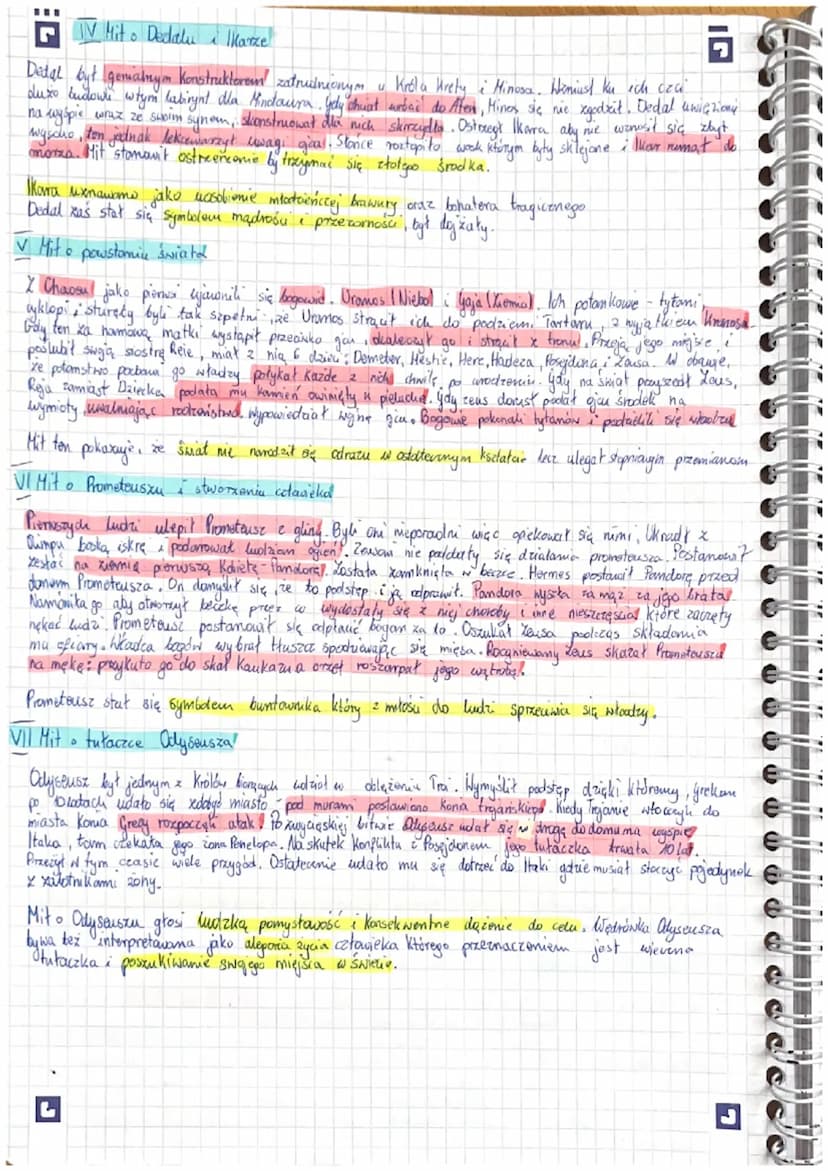 IV Mit o Dedalu i Ikarze
Dedal był genialnym konstruktorem zatrudnionym u Króla Krety i Minosa. Wzniósł ku ich czci
dużo budowli wtym labirynt dla Minotaura. Gdy chciał wrócić do Aten, Minos się nie zgodził. Dedal uwięziony
na wyspie wraz ze swoim synem, skonstruował dla nich skrzydła. Ostrzegł Ikara aby nie wznosił się zbyt
wysoko, ten jednak lekceważył uwagi ojca. Słońce roztopiło wosk którym były sklejone i Ikar runął do
morza. Mit stanowił ostrzeżenie by trzymać się złotego środka.
Ikara uznawano jako uosobienie młodzieńczej brawury oraz bohatera tragicznego
Dedal zaś stał się symbolem mądrości i przezorności, był dojrzały.
V Mit o powstaniu świata
Z Chaosu jako pierwsi wyłonili się bogowie. Uranos (Niebo) i Gaja (Ziemia). Ich potomkowie - tytani,
cyklopi, sturęcy byli tak szpetni, że Uranos strącił ich do podziemi Tartaru, z wyjątkiem Kronosa
Gdy ten za namową matki wystąpił przeciwko ojcu, okaleczył go i strącił z tronu. Przejął jego miejsce i
poślubił swoją siostrę Reię, miał z nią 6 dzieci: Demeter, Hestię, Herę, Hadesa, Posejdona i Zeusa. W obawie,
że potomstwo pozbawi go władzy połykał każde z nich chwilę po urodzeniu. Gdy na świat przyszedł Zeus,
Reja zamiast Dziecka podała mu kamień owinięty w pieluchę. Gdy zeus dorósł podał ojcu środek na
wymioty, uwalniając rodzeństwo. Wypowiedział wojnę ojcu. Bogowie pokonali tytanów i podzielili się władzą
Mit ten pokazuje, że świat nie narodził się odrazu w ostatecznym kształcie lecz ulegał stopniowym przemianom
VI Mit o Prometeuszu i stworzeniu człowieka
Pierwszych ludzi ulepił Prometeusz z gliny. Byli oni nieporadni więc opiekował się nimi, Ukradł z
Olimpu boską iskrę i podarował ludziom ogień. Zeusowi nie podobały się działania prometeusza. Postanowił
zesłać na ziemię pierwszą kobietę - Pandorę. Została zamknięta w beczce. Hermes postawił Pandorę przed
domem Prometeusza. On domyślił się, że to podstęp i ją odprawił. Pandora wyszła za mąż za jego brata
Namówiła go aby otworzył beczkę przez co wydostały się z niej choroby i inne nieszczęścia które zaczęły
nękać ludzi. Prometeusz postanowił się odpłacić bogom za to. Oszukał Zeusa podczas składania
mu ofiary. Władca bogów wybrał tłuszcz spodziewając się mięsa. Rozgniewany Zeus skazał Prometeusza
na mękę: przykuto go do skał Kaukazu a orzeł rozszarpał jego wątrobę.
Prometeusz stał się symbolem buntownika który z miłości do ludzi sprzeciwia się władzy.
VII Mit o tułaczce Odyseusza
Odyseusz był jednym z Królów biorących udział w oblężeniu Troi. Wymyślił podstęp dzięki któremu, grekom
po 10 latach udało się zdobyć miasto - pod murami postawiono konia trojańskiego. Kiedy Trojanie wtoczyli do
miasta konia Grecy rozpoczęli atak. Po zwycięskiej bitwie Odyseusz udał się w drogę do domu na wyspie
Itaka, tam czekała jego żona Penelopa. Na skutek konfliktu z Posejdonem jego tułaczka trwała 10 lat.
Przeżył w tym czasie wiele przygód. Ostatecznie udało mu się dotrzeć do Itaki gdzie musiał stoczyć pojedynek
z zalotnikami żony.
Mit o Odyseuszu głosi ludzką pomysłowość i konsekwentne dążenie do celu. Wędrówka Odyseusza
bywa też interpretowana jako alegoria życia człowieka którego przeznaczeniem jest wieczna
tułaczka i poszukiwanie swojego miejsca w świecie.